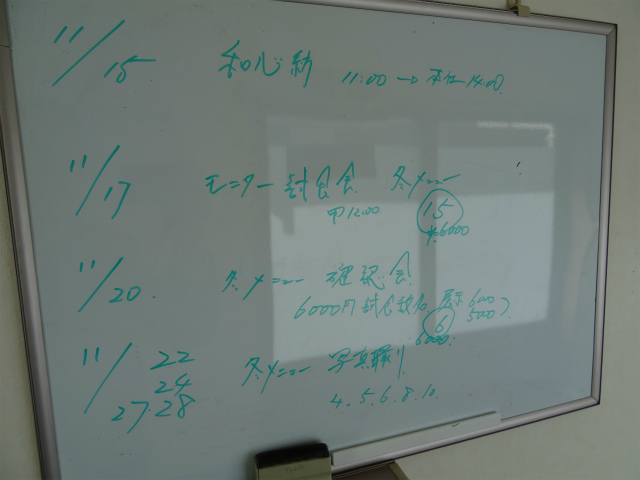 11/15 和心 11:00 → 本社 14:00
11/17 モニター試食会 冬メニュー
12:00 15
6000
11/20. 冬メニュー 確認会
6000円 試食 展示 600
500
6
6000
11/22 冬メニュー 写真撮り
24
27.28 4.5.6.8.10.